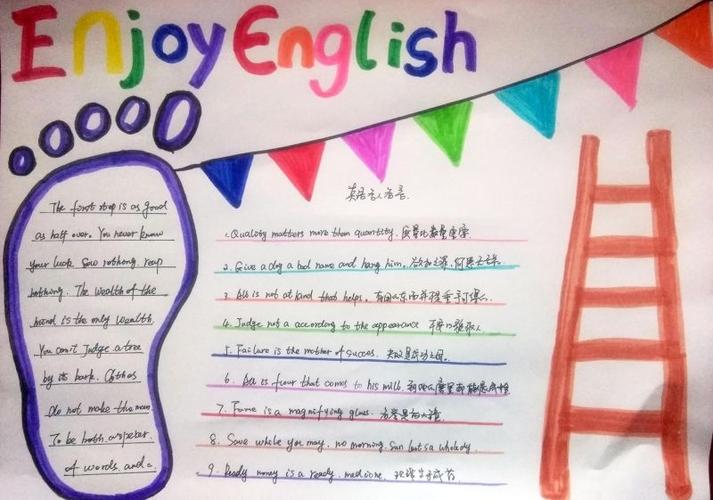 Enjoy English
The first step is as good
as half over. You never know
your luck. Sow nothing, reap
nothing. The wealth of the
mind is the only wealth.
You can't Judge a tree
by its bark. Clothes
do not make the man
To be both a speaker
of words and a
英语名人名言.
1. Quality matters more than quantity. 质量比数量重要.
2. Give a dog a bad name and hang him.
3. All is not at hand that helps. 有用的东西并
4. Judge not a according to the appearance
5. Failure is the mother of success. 失败是成功之母.
6. All is flour that comes to his mill.
7. Fame is a magnifying glass. 名誉是放大镜.
8. Save while you may, no morning sun lasts a whole day.
9. Ready money is a ready medicine.